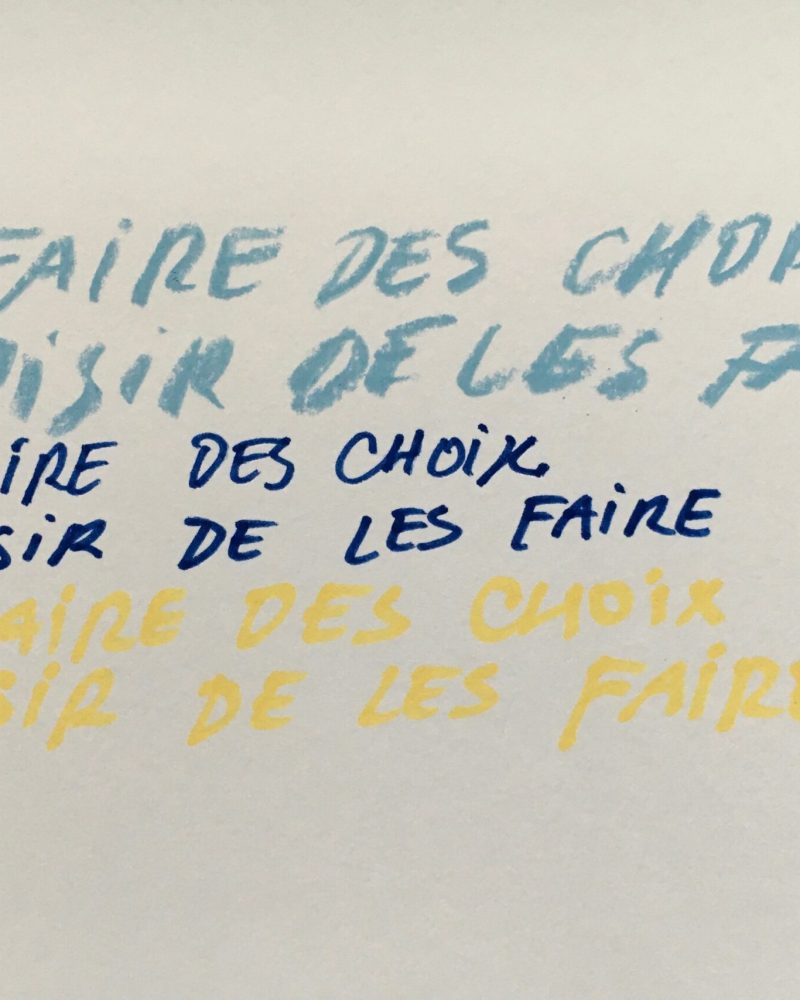 FAIRE DES CHOI
ISIR DE LES FA
IRE DES CHOIX
SIR DE LES FAIRE
AIRE DES CHOIX
SIR DE LES FAIRE